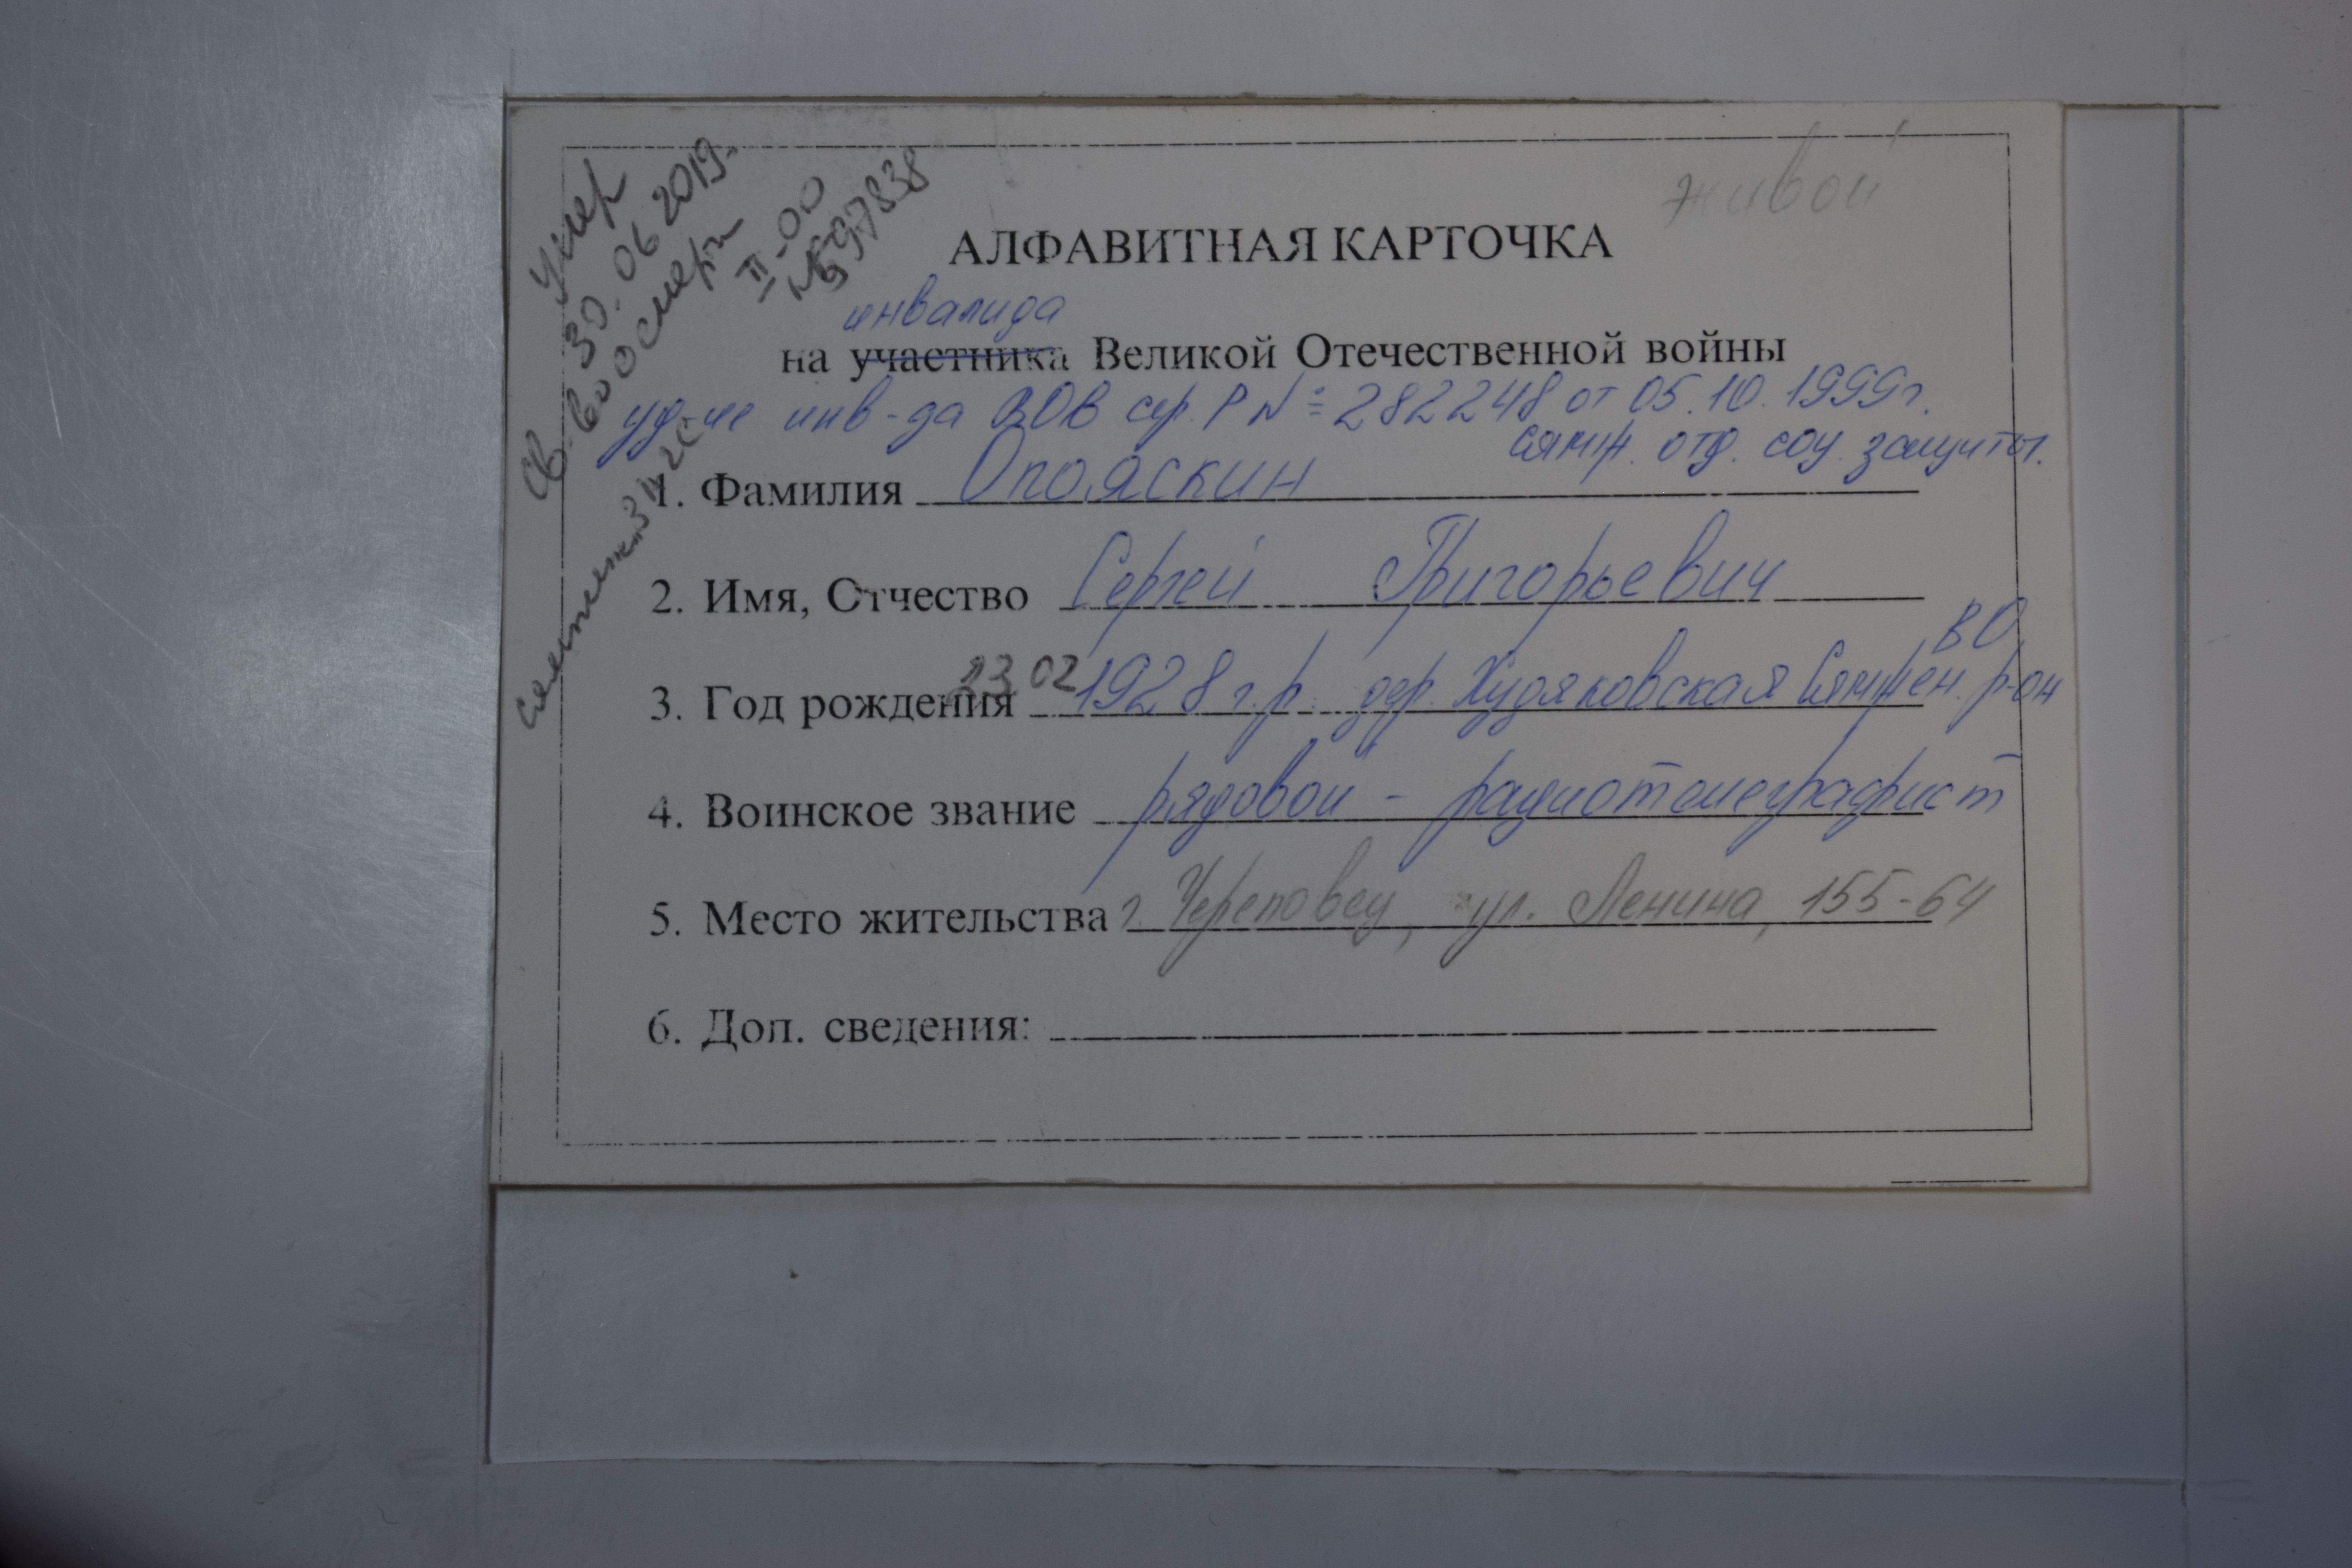 живой
Умер
30.06 2019.
Св-во о смерти
II-ОО
№ 597838
АЛФАВИТНАЯ КАРТОЧКА
инвалида
на участника Великой Отечественной войны
уд-ие инв-да ВОВ сер. Р № 282248 от 05.10.1999г.
Сямж. отд. соц. защиты.
1. Фамилия Опояскин
2. Имя, Отчество Сергей Григорьевич
ВО
3. Год рождения 23 02 1928 г.р. дер. Худяковская Сямжен. р-он
4. Воинское звание рядовой - радиотелеграфист
5. Место жительства г. Череповец, ул. Ленина, 155-64
6. Доп. сведения: